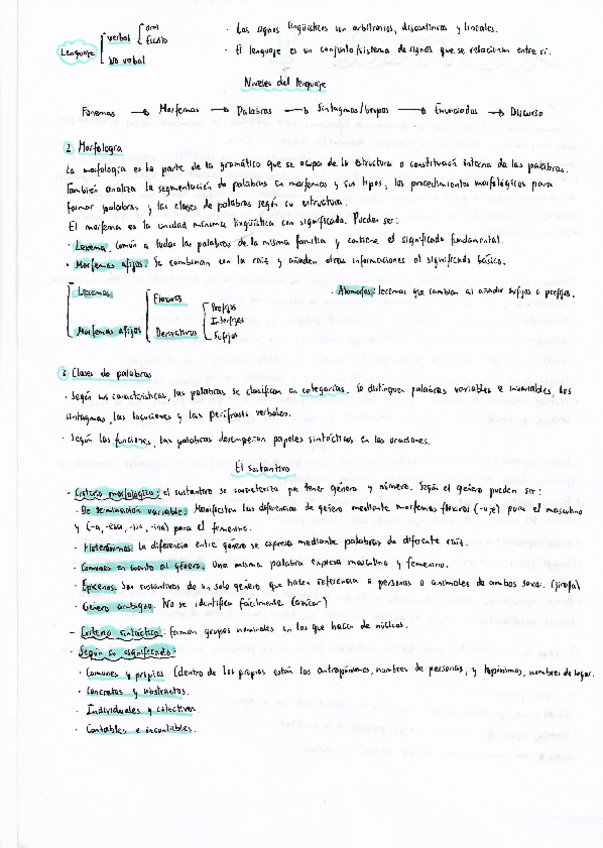 Lenguaje
verbal
oral
Escrito
No verbal
· Los signos lingüísticos son arbitrarios, discontinuos y lineales.
· El lenguaje es un conjunto/sistema de signos que se relacionan entre sí.
Niveles del lenguaje
Fonemas → Morfemas → Palabras → Sintagmas/Grupos → Enunciados → Discurso
2 Morfología
La morfología es la parte de la gramática que se ocupa de la estructura o constitución interna de las palabras.
También analiza la segmentación de palabras en morfemas y sus tipos, los procedimientos morfológicos para
formar palabras y las clases de palabras según su estructura.
El morfema es la unidad mínima lingüística con significado. Pueden ser:
· Lexema. Común a todas las palabras de la misma familia y contiene el significado fundamental.
· Morfemas afijos. Se combinan con la raíz y añaden otras informaciones al significado básico.
Lexemas
Morfemas afijos
Flexivos
Derivativos
Prefijos
Interfijos
Sufijos
· Alomorfos: lexemas que cambian al añadir sufijos o prefijos.
3 Clases de palabras
· Según sus características, las palabras se clasifican en categorías. Se distinguen palabras variables e invariables, los
sintagmas, las locuciones y las perífrasis verbales.
· Según las funciones, las palabras desempeñan papeles sintácticos en las oraciones.
El sustantivo
- Criterio morfológico: el sustantivo se caracteriza por tener género y número. Según el género pueden ser:
· De terminación variable. Manifiestan las diferencias de género mediante morfemas flexivos (-o,e) para el masculino
y (-a, -esa, -isa, -ina) para el femenino.
· Heterónimos: la diferencia entre género se expresa mediante palabras de diferente raíz.
· Comunes en cuanto al género. Una misma palabra expresa masculino y femenino.
· Epicenos. Son sustantivos de un solo género que hacen referencia a personas o animales de ambos sexos. (jirafa)
· Género ambiguo. No se identifica fácilmente (azúcar)
- Criterio sintáctico: forman grupos nominales en los que hacen de núcleo.
· Según su significado:
· Comunes y propios (dentro de los propios están los antropónimos, nombres de personas, y topónimos, nombres de lugar.
· Concretos y abstractos.
· Individuales y colectivos.
· Contables e incontables.